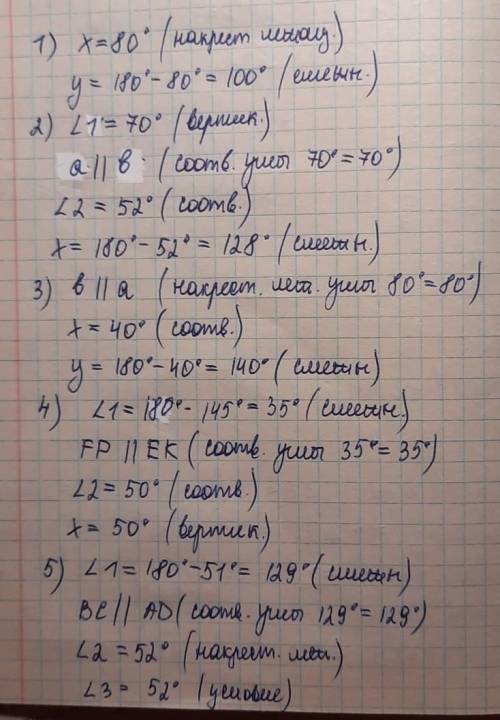 1) x = 80° (накрест лежащ.)
y = 180° - 80° = 100° (смежн.)
2) ∠1 = 70° (вертик.)
a || b (соотв. углы 70° = 70°)
∠2 = 52° (соотв.)
x = 180° - 52° = 128° (смежн.)
3) b || a (накрест. леж. углы 80° = 80°)
x = 40° (соотв.)
y = 180° - 40° = 140° (смежн)
4) ∠1 = 180° - 145° = 35° (смежн.)
FP || EK (соотв. углы 35° = 35°)
∠2 = 50° (соотв.)
x = 50° (вертик.)
5) ∠1 = 180° - 51° = 129° (смежн)
BC || AD (соотв. углы 129° = 129°)
∠2 = 52° (накрест. леж.)
∠3 = 52° (условие)